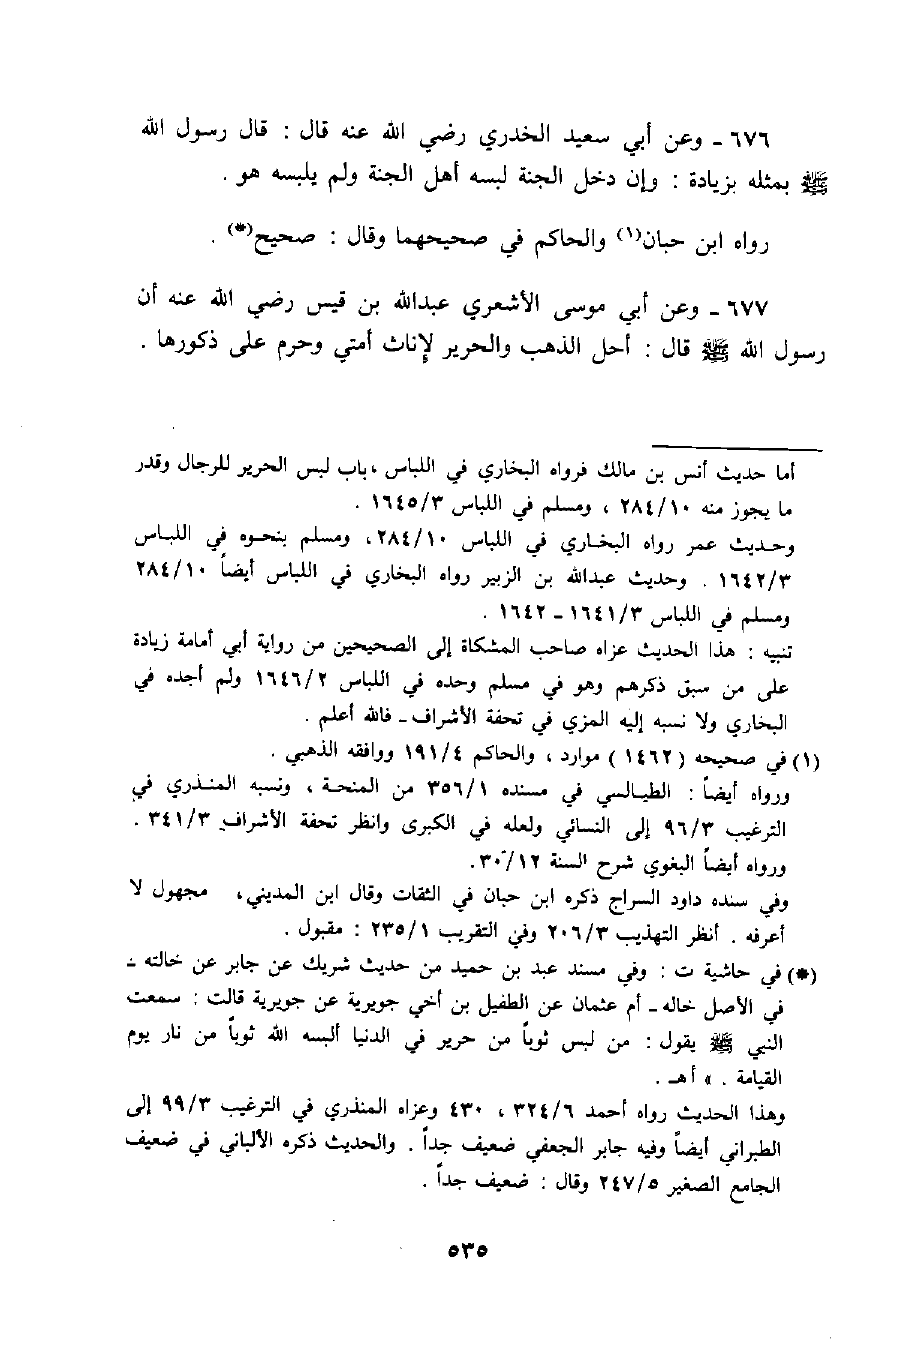 ٦٧٦ ـ وعن أبي سعيد الخدري رضي الله عنه قال : قال رسول الله
ﷺ بمثله بزيادة : وإن دخل الجنة لبسه أهل الجنة ولم يلبسه هو .
رواه ابن حبان(١) والحاكم في صحيحهما وقال : صحيح(*) .
٦٧٧ ـ وعن أبي موسى الأشعري عبدالله بن قيس رضي الله عنه أن
رسول الله ﷺ قال : أحل الذهب والحرير لإناث أمتي وحرم على ذكورها .
أما حديث أنس بن مالك فرواه البخاري في اللباس ، باب لبس الحرير للرجال وقدر
ما يجوز منه ٢٨٤/١٠ ، ومسلم في اللباس ١٦٤٥/٣ .
وحديث عمر رواه البخاري في اللباس ٢٨٤/١٠، ومسلم بنحوه في اللباس
١٦٤٢/٣ . وحديث عبدالله بن الزبير رواه البخاري في اللباس أيضاً ٢٨٤/١٠
ومسلم في اللباس ١٦٤١/٣ ـ ١٦٤٢ .
تنبيه : هذا الحديث عزاه صاحب المشكاة إلى الصحيحين من رواية أبي أمامة زيادة
على من سبق ذكرهم وهو في مسلم وحده في اللباس ١٦٤٦/٢ ولم أجده في
البخاري ولا نسبه إليه المزي في تحفة الأشراف ـ فالله أعلم .
(١) في صحيحه ( ١٤٦٢ ) موارد ، والحاكم ١٩١/٤ ووافقه الذهبي .
ورواه أيضاً : الطيالسي في مسنده ٣٥٦/١ من المنحة ، ونسبه المنذري في
الترغيب ٩٦/٣ إلى النسائي ولعله في الكبرى وانظر تحفة الأشراف ٣٤١/٣ .
ورواه أيضاً البغوي شرح السنة ٣٠/١٢.
وفي سنده داود السراج ذكره ابن حبان في الثقات وقال ابن المديني، مجهول لا
أعرفه . أنظر التهذيب ٢٠٦/٣ وفي التقريب ٢٣٥/١ : مقبول .
(*) في حاشية ت : وفي مسند عبد بن حميد من حديث شريك عن جابر عن خالته ـ
في الأصل خاله ـ أم عثمان عن الطفيل بن أخي جويرية عن جويرية قالت : سمعت
النبي ﷺ يقول : من لبس ثوباً من حرير في الدنيا ألبسه الله ثوباً من نار يوم
القيامة . » أهـ .
وهذا الحديث رواه أحمد ٣٢٤/٦ ، ٤٣٠ وعزاه المنذري في الترغيب ٩٩/٣ إلى
الطبراني أيضاً وفيه جابر الجعفي ضعيف جداً . والحديث ذكره الألباني في ضعيف
الجامع الصغير ٢٤٧/٥ وقال : ضعيف جداً .
٥٣٥